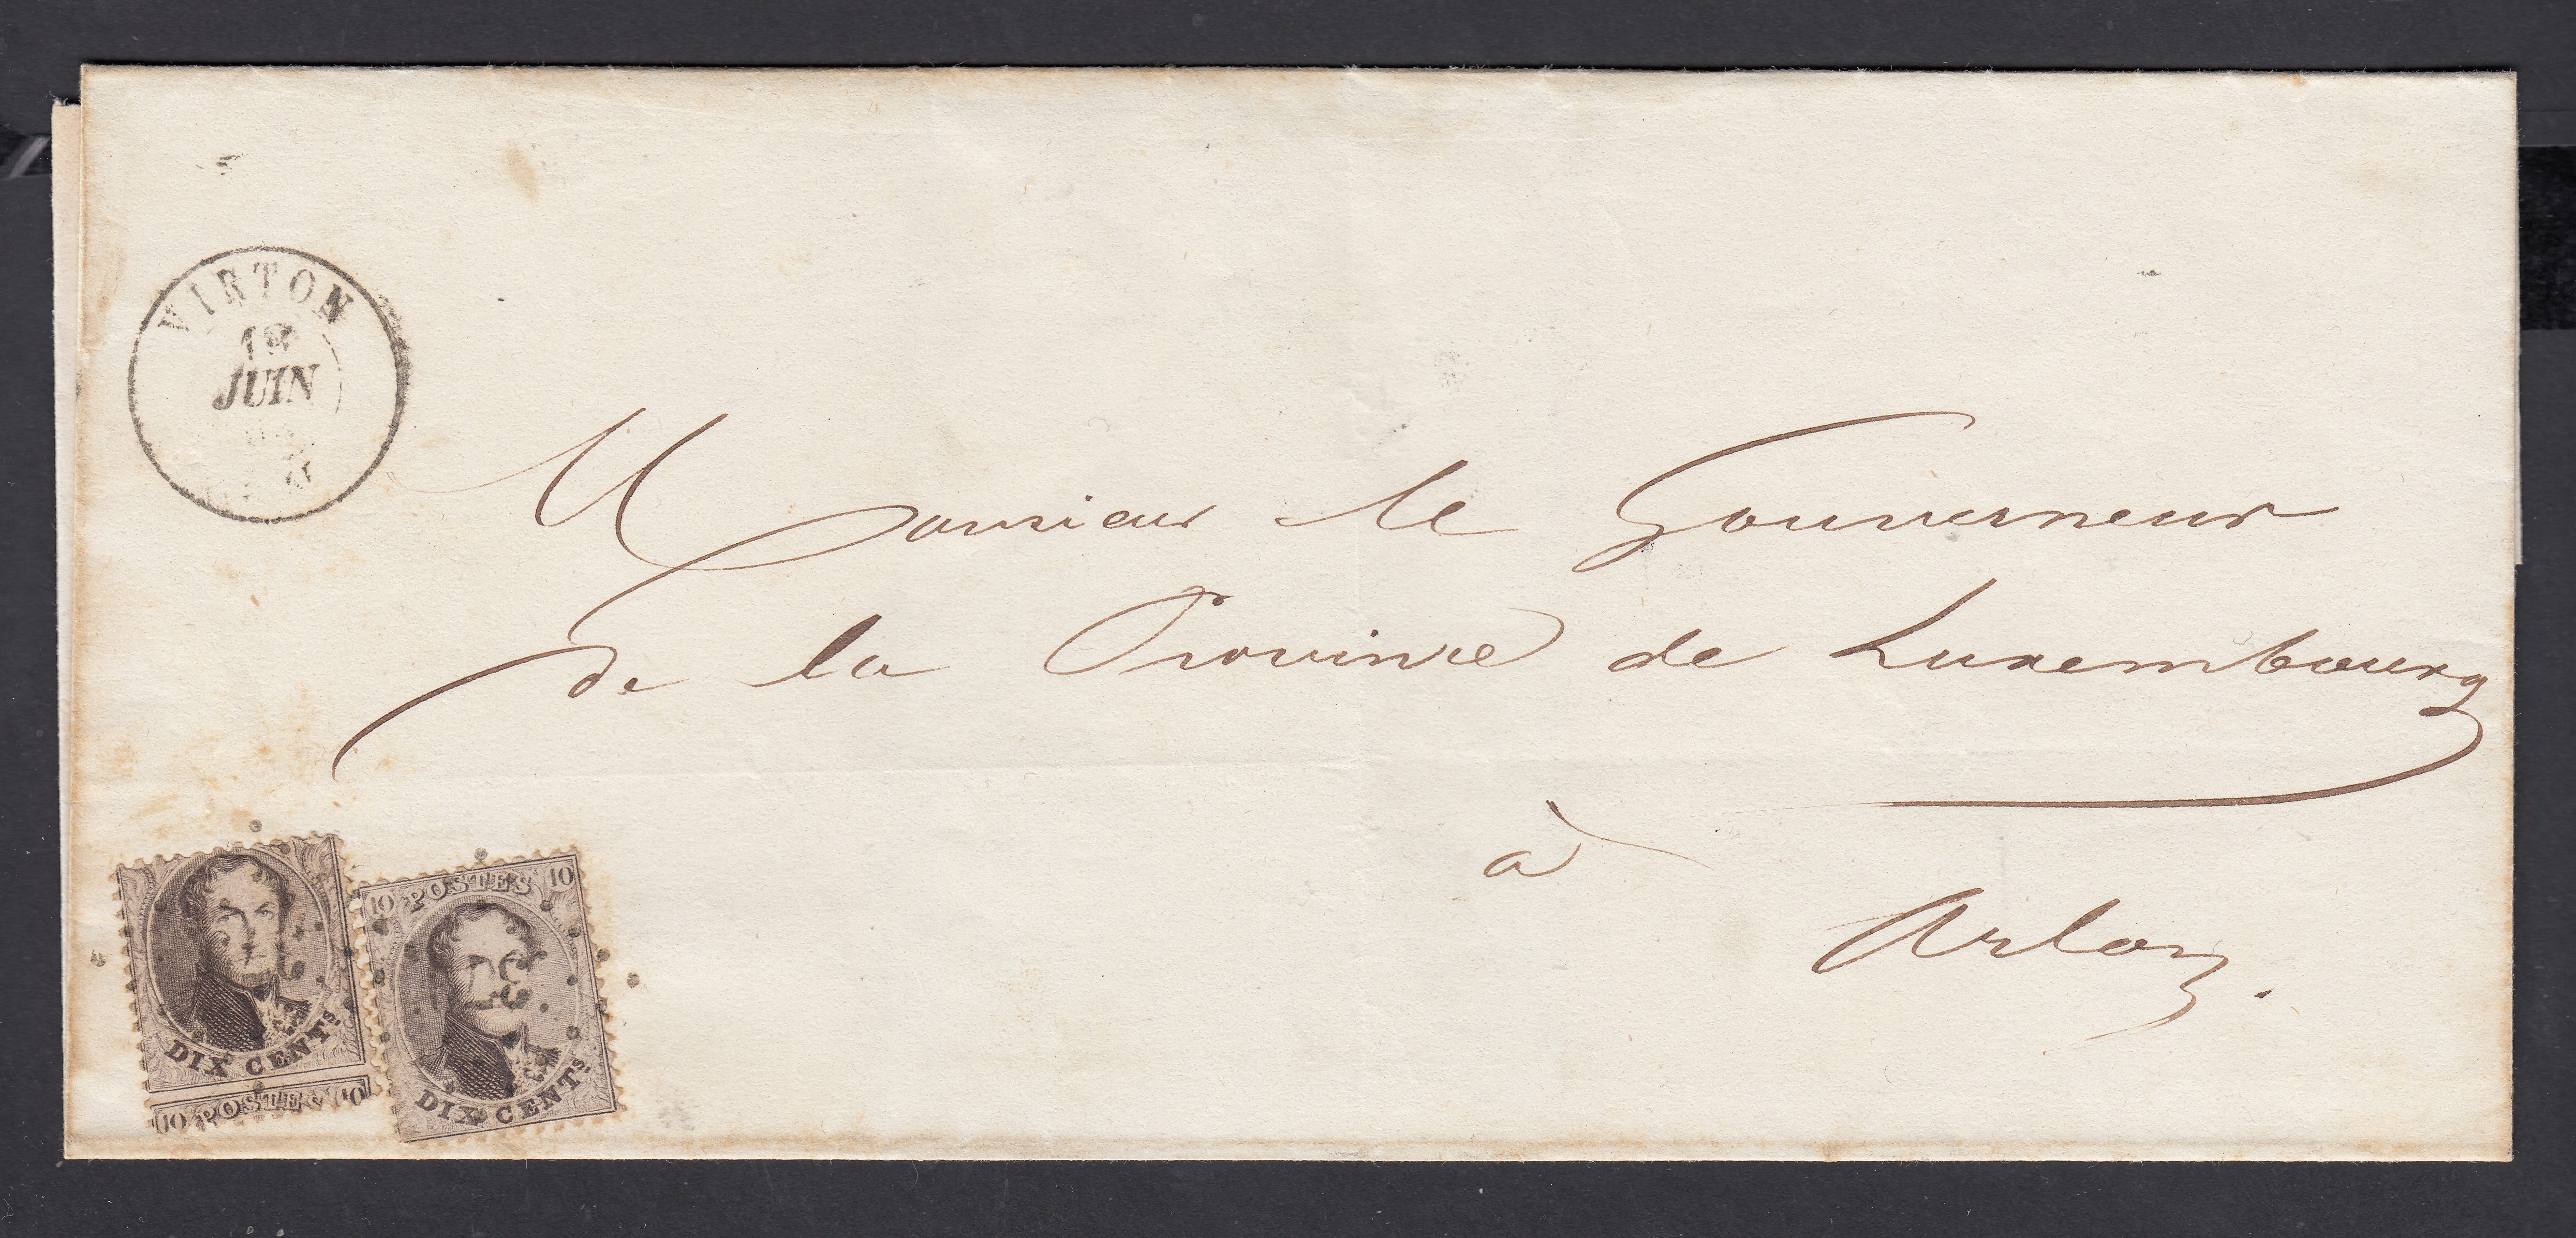 VIRTON
JUIN
Monsieur le Gouverneur
de la Province de Luxembourg
à
Arlon.
DIX CENTS.
10 POSTES 10
10 POSTES 10
DIX CENTS.